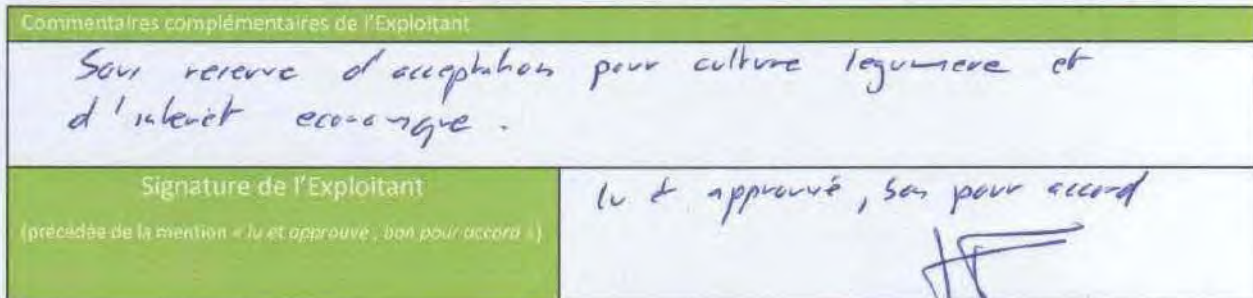 Commentaires complémentaires de l'Exploitant
Sous reserve d'acceptation pour culture legumiere et
d'interêt economique.
Signature de l'Exploitant
(précédée de la mention « lu et approuvé, bon pour accord »)
lu et approuvé, bon pour accord